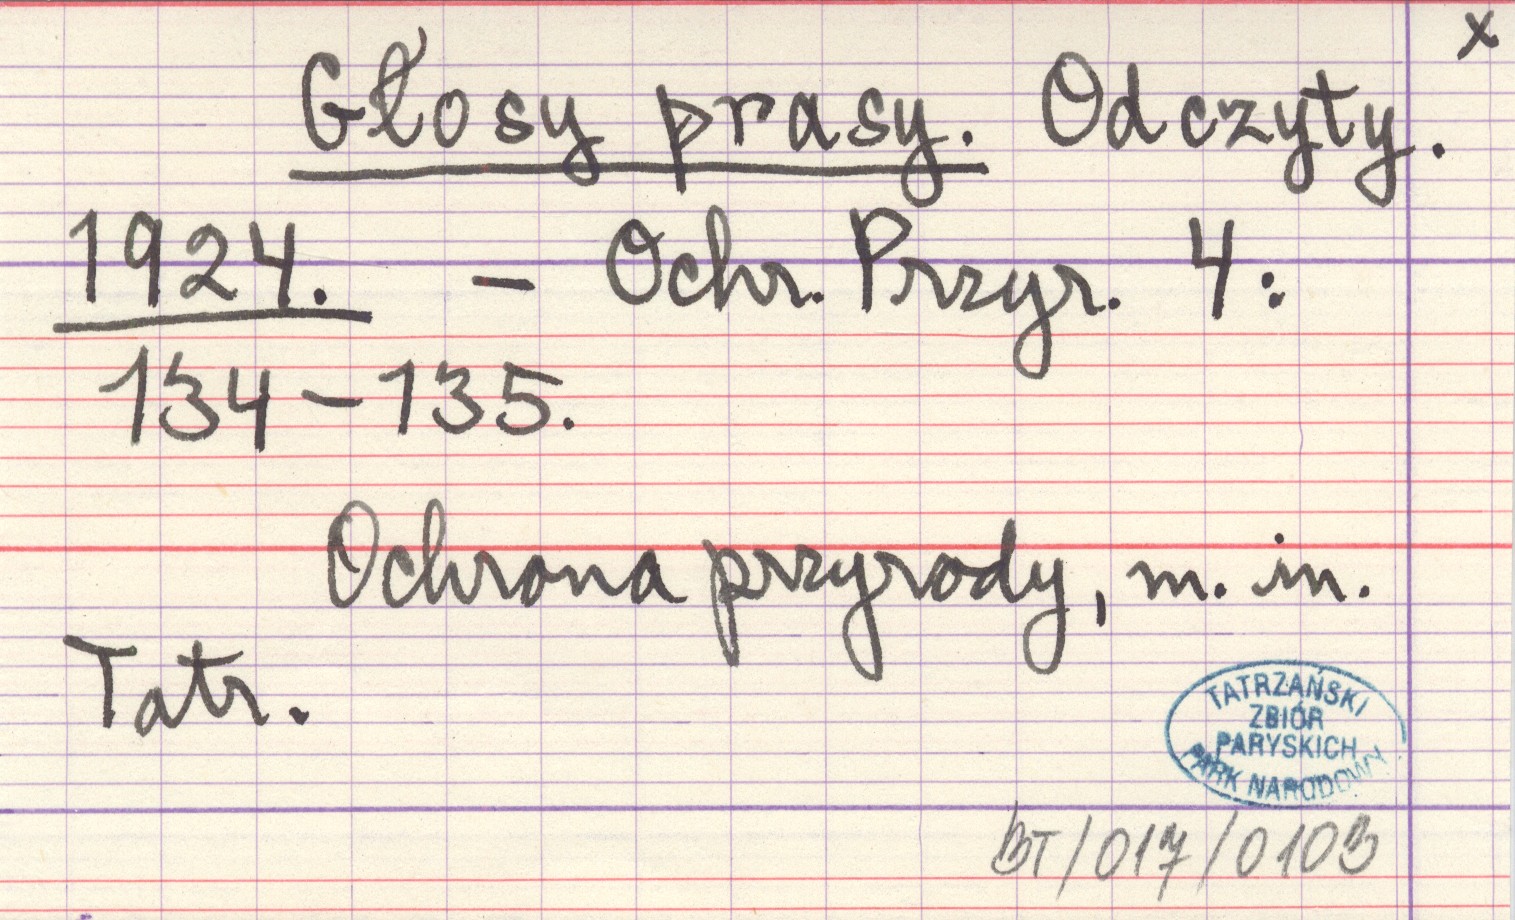 x
Głosy prasy. Odczyty.
1924. – Ochr. Przyr. 4:
134–135.
Ochrona przyrody, m. in.
Tatr.
TATRZAŃSKI
ZBIÓR
PARYSKICH
PARK NARODOWY
BT/017/0103